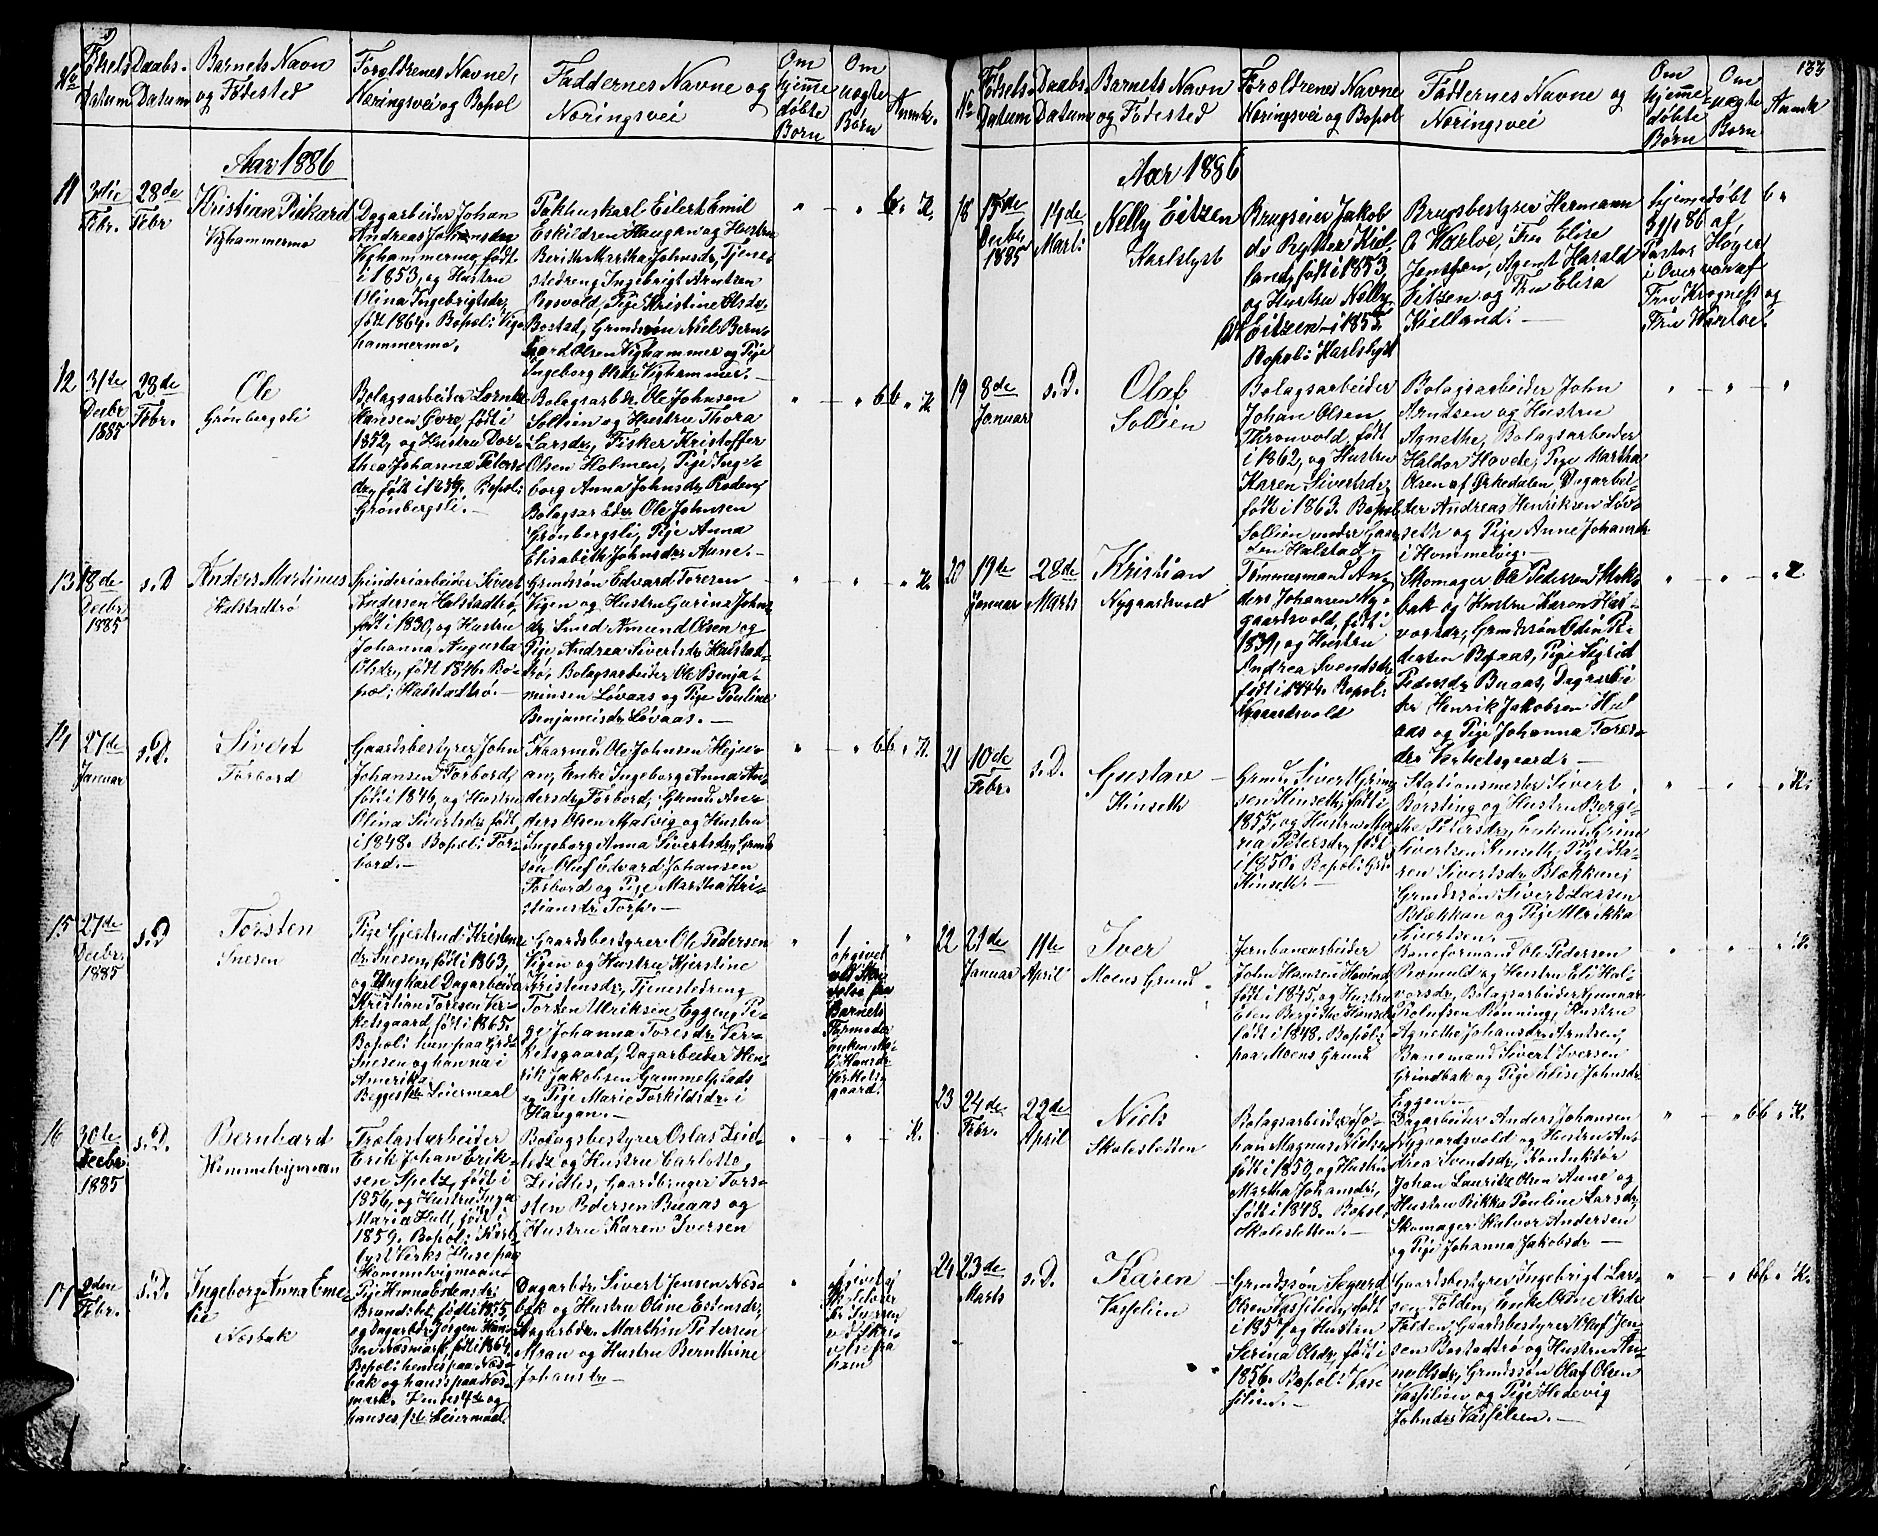 133
No
Fødsels-
Datum
Daabs-
Datum
Barnets Navn
og Fødested
Forældrenes Navne,
Næringsvei og Bopæl
Faddernes Navne og
Næringsvei
Om
hjemme
døbte
Børn
Om
uægte
Børn
Anmk.
Aar 1886
11
3die
Febr.
28de
Febr
Kristian Rikard
Vighammermo
Dagarbeider Johan
Andreas Johansen
Vighammermo, født
i 1853, og Hustru
Olina Ingebrigtsdr,
født 1864. Bopæl: Vig-
hammermo.
Pakhuskarl Eilert Emil
Eskildsen Haugan og Hustru
Berith Martha Johnsdr, Tjene-
stedreng Ingebrigt Arntsen
Pige Kristine Olsdr
Bostad, Grmdssøn Axel Bern-
hard Olsen Vighammer og Pige
Ingeborg Olsdr Vighammer.
12
31te
Decbr
1885
28de
Febr.
Ole
Grønbergsli
Bolagsarbeider Lorents
Hansen Øvre, født i
1852, og Hustru Dor-
thea Johanna Peters-
dr, født i 1859. Bopæl:
Grønbergsli.
Bolagsarbdr Ole Johnsen
Sollien og Hustru Thora
Larsdr, Fisker Kristoffer
Olsen Holmen, Pige Inge-
borg Anna Johnsdr
Bolagsarbdr Ole Johnsen
Grønbergsli, Pige Anna
Elisabeth Johnsdr Aune.
13
18de
Decbr
1885
s.D
Anders Martinus
Halstadtrø
Spinderiarbeider Sivert
Andersen Halstadtrø,
født i 1830, og Hustru
Johanna Augusta
Olsdr, født 1846. Bo-
pæl: Halstadtrø.
Grmdssøn Edvard Toresen
Vigen og Hustru Gurina Johns-
dr, Smed Amund Olsen og
Pige Andrea Sivertsdr Halstad-
trø, Bolagsarbeider Ole Benja-
minsen Løvaas og Pige Pauline
Benjaminsdr Løvaas.
14
27de
Januar
s.D.
Sivert
Forbord
Gaardsbestyrer John
Johansen Forbord,
født i 1846, og Hustru
Olina Sivertsdr, født
i 1848. Bopæl: For-
bord.
Kaarmd. Ole Johnsen
Enke Ingeborg Anna An-
dersdr Forbord, Grmd. An-
ders Olsen Malvig og Hustru
Ingeborg Anna Sivertsdr, Grmds-
søn Oluf Edvard Johansen
Forbord og Pige Martha Kri-
stiansdr Torp.
15
27de
Decbr.
1885
s.D
Torsten
Snesen
Pige Gjertrud Kristens-
dr Snesen, født i 1863,
og Ungkarl Dagarbeider
Kristian Toresen Ver-
ketsgaard, født i 1865.
Bopæl: hun paa
Snesen og han na i
Amerika
Begges 1ste Leiermaal
Gaardsbestyrer Ole Pedersen
Vigen og Hustru Kjerstine
Kristensdr, Tjenestedreng
Torsten Ulriksen Eggen, Pi-
ge Johanna Toresdr Ver-
ketsgaard, Dagarbeider Hen-
rik Jakobsen Gammelplads
og Pige Marie Torkildsdr i
Haugan.
opgivet
Barnets
Farmoder
gaard.
16
30te
Decbr
1885
s.D.
Bernhard
Hommelvigmoan
Trælastarbeider
Erik Johan Erik-
sen Spets, født i
1856, og Hustru Inga
Maria Hult, født i
1859. Bopæl: Karls-
lyst Verks Huse paa
Hommelvigmoan
Bolagsbestyrer Oskar Zeid-
litz og Hustru Carlotte
Zeidlits, Gaardbruger Tor-
sten Pedersen Buaas og
Hustru Karen Iversen
17
2den
Febr.
s.D.
Ingeborg Anna Eme-
lie
Næsbak
Pige Hanna Estensdr
født i 1855
og Dagarbdr Jørgen Han-
sen Næsmark, født i 1864.
Bopæl: hendes paa Næs-
bak og hanses paa Næs-
mark. Hendes 4de og
hanses 1ste Leiermaal.
Dagarbdr Sivert Jensen Næs-
bak og Hustru Oline Estensdr,
Dagarbdr. Marthin Petersen
Moan og Hustru Bernthine
Johansdr
No
Fødsels-
Datum
Daabs-
Datum
Barnets Navn
og Fødested
Forældrenes Navne
Næringsvei og Bopæl
Faddernes Navne og
Næringsvei
Om
hjemme-
døbte
Børn
Om
uægte
Børn
Anmk
Aar 1886
18
15de
Decbr.
1885
14de
Marts
Nelly Eitzen
Karlslyst
Brugseier Jakob
de Rytter Kiel-
land, født i 1853,
og Hustru Nelly
Eitzen i 1855
Bopæl: Karlslyst
Brugsbestyrer Hermann
O Harloe, Fru Elise
Jenssen, Agent Harald
Eitzen og Fru Elisa
Kielland.
hjemmedøbt
31/1 86 af
Pastor Høyer
i Overvær af
Fru Krogness og
Fru Harloe.
19
8de
Januar
s.D.
Olaf
Sollien
Bolagsarbeider
Johan Olsen
Tronvold, født
i 1862, og Hustru
Karen Sivertsdr,
født i 1863. Bopæl
Sollien under Gaar-
den Halstad.
Bolagsarbeider John
Arntsen og Hustru
Agnethe, Bolagsarbeider
Haldor Hovde, Pige Martha
Olsen af Ørkedalen, Dagarbei-
der Andreas Henriksen Løv-
seth og Pige Anne Johansdr
i Hommelvig.
20
19de
Januar
28de
Marts
Kristian
Nygaardsvold
Tømmermand An-
ders Johansen Ny-
gaardsvold, født i
1839, og Hustru
Andrea Svendsdr
født i 1844. Bopæl:
Nygaardsvold
Skomager Ole Pedersen
bak og Hustru Karen Hal-
vorsdr, Grmdssøn Odin Pe-
dersen Buaas, Pige Sigrid
Pedersdr Buaas, Dagarbei
der Henrik Jakobsen
og Pige Johanna Tores-
dr Verketsgaard.
21
10de
Febr.
s.D.
Gustav
Hinseth
Grmd. Sivert Grim-
sen Hinseth, født i
1855, og Hustru Ma-
ria Petersdr, født
i 1850. Bopæl: Grd
Hinseth.
Stationsmester Sivert
Borsting og Hustru Berge-
the Petersdr, Grim
Sivertsen Hinseth, Pige Ka-
ren Sivertsdr Blækkan,
Grmdssøn Sivert Lassen
Blækkan og Pige Ulrikka
Sivertsen.
22
21de
Januar
11te
April
Iver
Moens Grund
Jernbanearbeider
John Hansen Hovind
født i 1845, og Hustru
Elen Bergitte Hansdr
født i 1848. Bopæl:
paa Moens Grund
Baneformand Ole Pedersen
Romuld og Hustru Eli Hal-
vorsdr, Bolagsarbeider Gunnar
Rolufsen Rønning, Hustru
Agnethe Johansdr Arntsen,
Banemand Sivert Iversen
Grindbak og Pige Elise Johnsdr
Eggen.
23
24de
Febr.
22de
April
Niels
Skolesletten
Bolagsarbeider Jo-
han Magnus Nielsen
født i 1850, og Hustru
Martha Johansdr,
født i 1848. Bopæl:
Skolesletten.
Dagarbeider Anders Johansen
Nygaardsvold og Hustru An-
drea Svendsdr, Konduktør
Johan Lauritz Olsen Aune og
Hustru Rikka Pauline Larsdr,
Skomager Halvor Andersen
og Pige Johanna Jakobsdr
24
23de
Marts
s.D.
Karen
Vasslien
Grmdssøn Sigurd
Olsen Vasslien, født
i 1857 og Hustru
Serina Olsdr, født i
1856. Bopæl: Vas-
slien.
Gaardsbestyrer Ingebrigt Lar-
sen Folden, Enke Olsdr
Folden, Gaardsbestyrer Oluf Jen-
sen Bostadtrø og Hustru An-
ne Olsdr, Grmdssøn Olaf Olsen
Vasslien og Pige Hedevig
Johnsdr Vasslien.